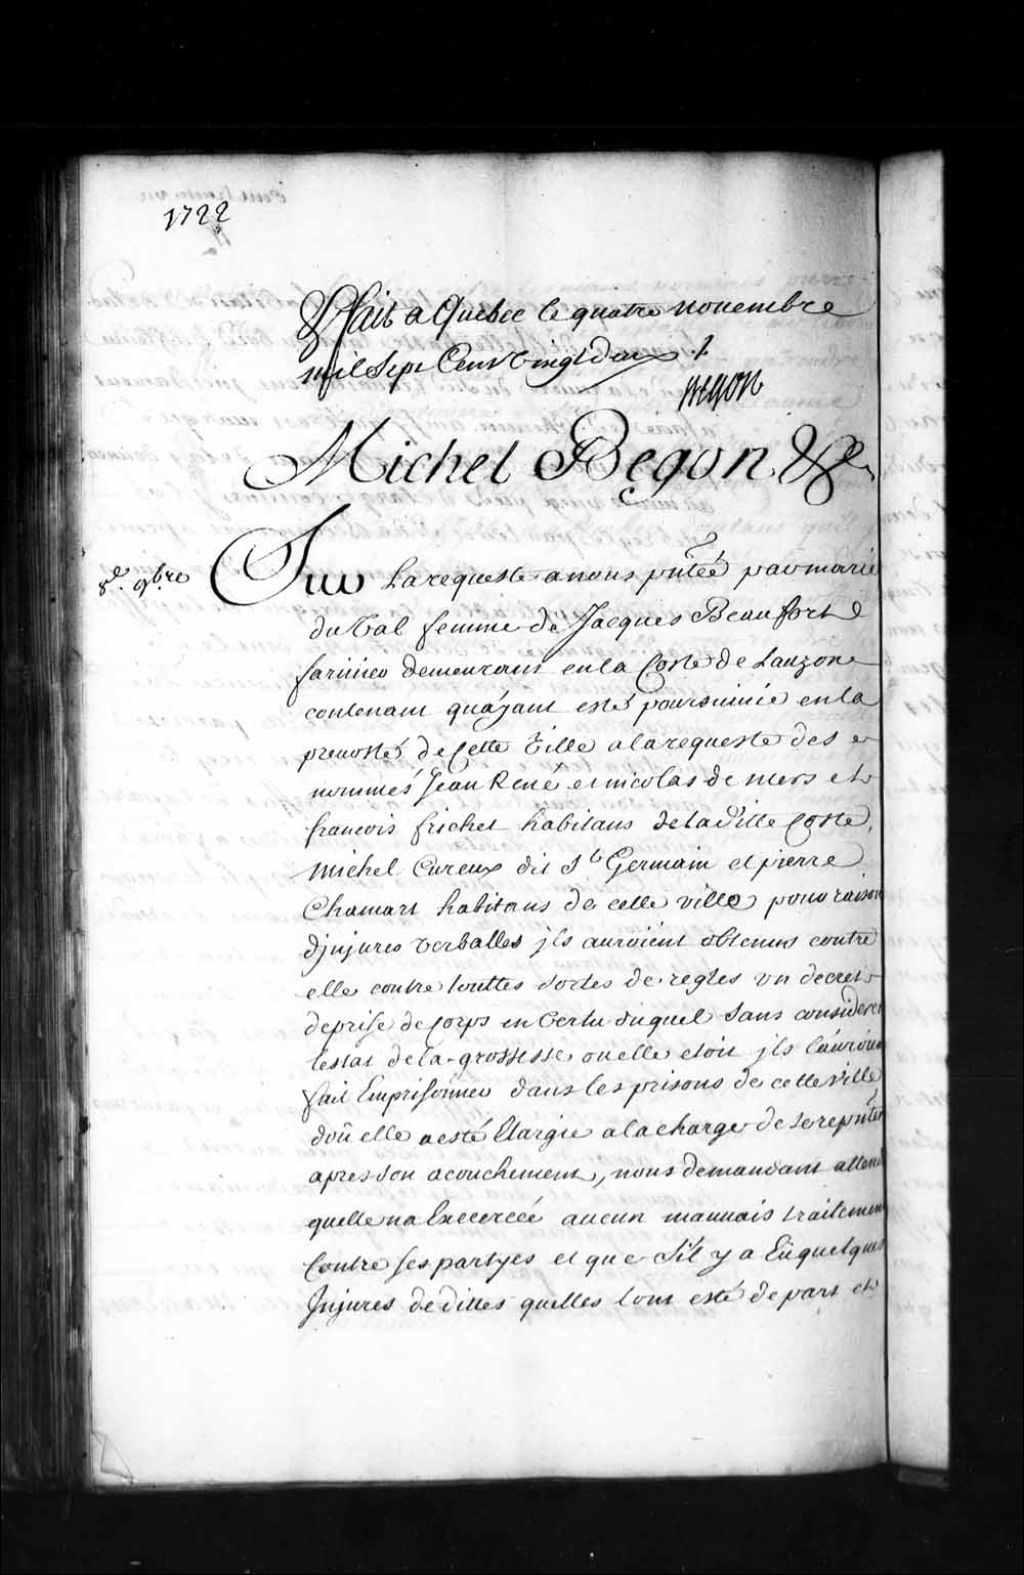 1722
Fait a Quebec le quatre nouembre
mil Sept Cent Vingt deux ./.
Begon
Michel Begon &c
8e. 9bre
Sur La requeste a nous pntéé par marie
du Val femme de Jacques Beaufort
demeurans en la Coste de Lauzon
contenant quáyant esté poursuiuie en la
preuosté de Cette Ville a la requeste des
nommés Jean René et nicolas de mers et
francois frichet habitans de lad'itte Coste,
Michel Cureux dit St Germain et pierre
Chamart habitans de cette ville pour raison
djnjures verballes jls auroient obtenus contre
elle contre touttes sortes de regles vn decret
de prise de Corps en Vertu duquel sans considerer
lestat de la grossesse ou elle etoit jls l'auroient
fait Emprisonner dans les prisons de cette ville
doû elle a esté Elargie a la charge de se repnter
apres son acouchement, nous demandant attendu
quelle na Excercéé aucun mauuais traitement
Contre ses partyes et que S'il y a Eü quelques
Injures de dittes quelles lont esté de part et